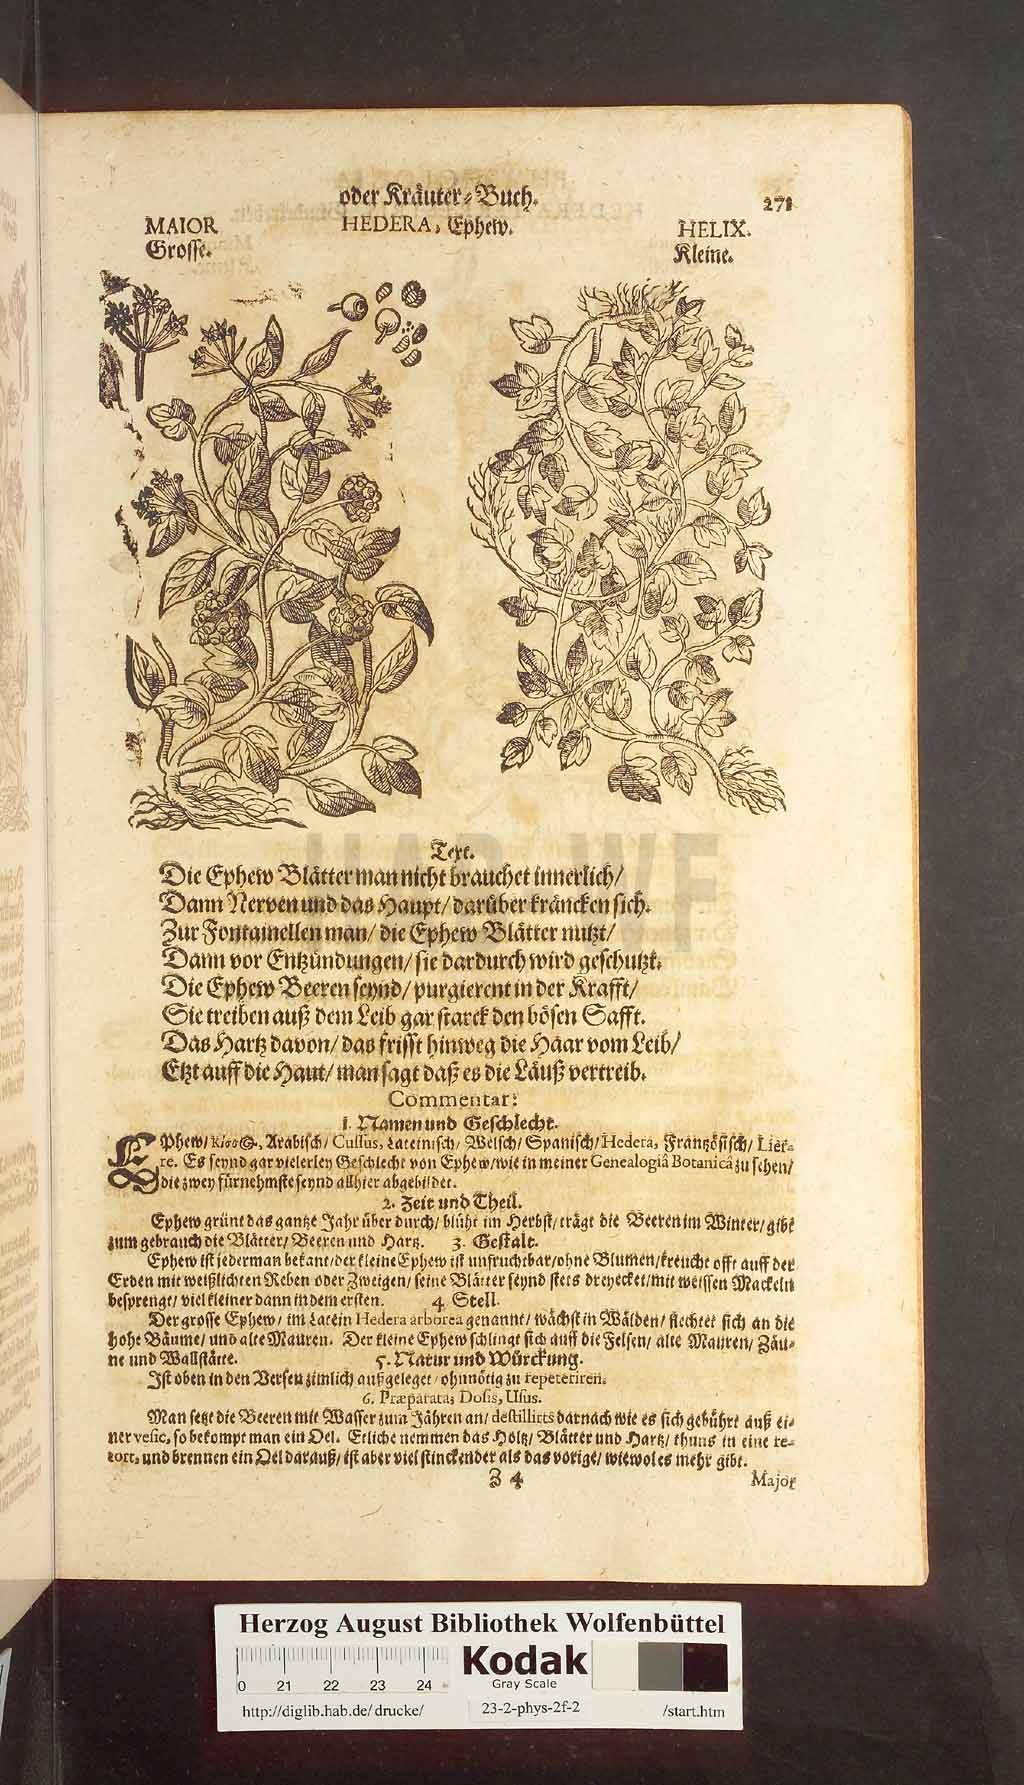 oder Kräuter-Buch.
271
MAIOR
Grosse.
HEDERA, Ephew.
HELIX.
Kleine.
Text.
Die Ephew Blätter man nicht brauchet innerlich/
Dann Nerven und das Haupt/ darüber kräncken sich.
Zur Fontainellen man/ die Ephew Blätter nutzt/
Dann vor Entzündungen/ sie dardurch wird geschutzt.
Die Ephew Beeren seynd/ purgierent in der Krafft/
Sie treiben auß dem Leib gar starck den bösen Safft.
Das Hartz davon/ das frisst hinweg die Haar vom Leib/
Etzt auff die Haut/ man sagt daß es die Läuß vertreib.
Commentar:
1. Namen und Geschlecht.
EPhew/ Arabisch/ Cussus, Lateinisch/ Welsch/ Spanisch/ Hedera, Frantzösisch/ Lier-
re. Es seynd gar vielerley Geschlecht von Ephew/ wie in meiner Genealogiâ Botanicâ zu sehen/
die zwey fürnehmste seynd allhier abgebildet.
2. Zeit und Theil.
Ephew grünt das gantze Jahr über durch/ blüht im Herbst/ trägt die Beeren im Winter/ gibt
zum gebrauch die Blätter/ Beeren und Hartz. 3. Gestalt.
Ephew ist jederman bekant/ der kleine Ephew ist unfruchtbar/ ohne Blumen/ kreucht offt auff der
Erden mit weißlichten Reben oder Zweigen/ seine Blätter seynd stets dreyecket/ mit weissen Mackeln
besprengt/ viel kleiner dann in dem ersten. 4. Stell.
Der grosse Ephew/ im Latein Hedera arborea genannt/ wächst in Wälden/ flechtet sich an die
hohe Bäume/ und alte Mauren. Der kleine Ephew schlingt sich auff die Felsen/ alte Mauren/ Zäu-
ne und Wallstätte. 5. Natur und Würckung.
Ist oben in den Versen zimlich außgeleget/ ohnnötig zu repeteriren.
6. Præparata, Dosis, Usus.
Man setzt die Beeren mit Wasser zum Jähren an/ destillirts darnach wie es sich gebührt auß ei-
ner vesic, so bekompt man ein Oel. Etliche nemmen das Holtz/ Blätter und Hartz/ thuns in eine re-
tort, und brennen ein Oel darauß/ ist aber viel stinckender als das vorige/ wiewol es mehr gibt.
Z 4
Major
HAB WF
Herzog August Bibliothek Wolfenbüttel
0 21 22 23 24
Kodak
Gray Scale
http://diglib.hab.de/drucke/
23-2-phys-2f-2
/start.htm